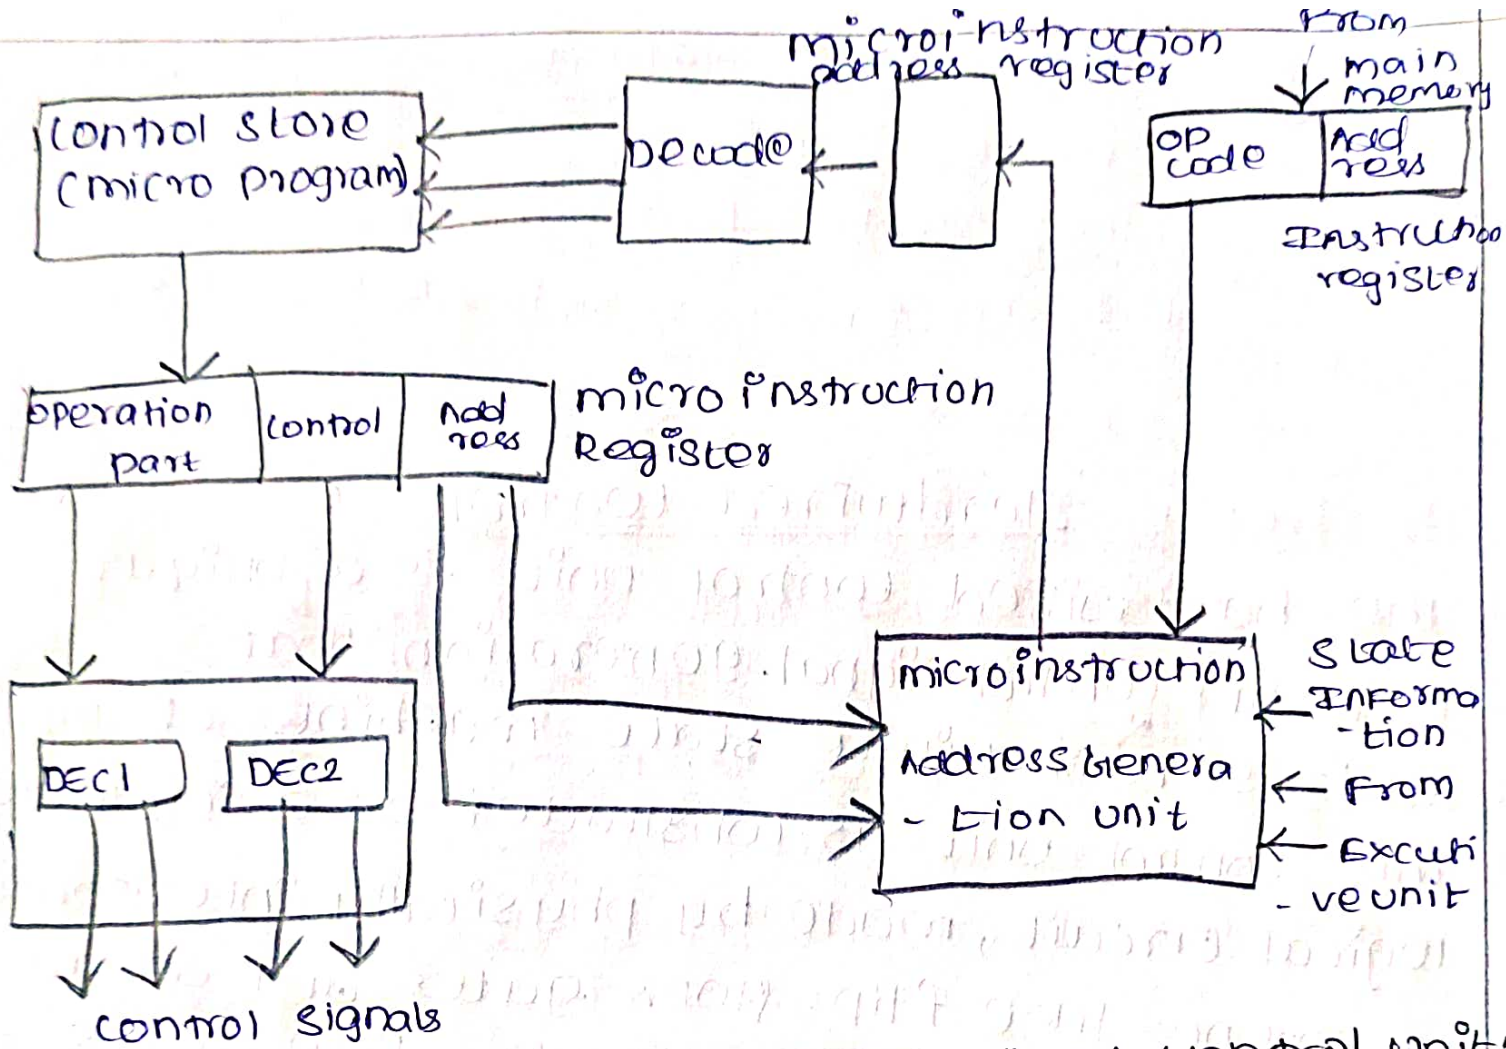 microinstruction
address register
From
main
memory
control store
(micro program)
Decode
OP
code
Add
ress
Instruction
register
operation
part
control
Add
ress
micro instruction
Register
DEC1
DEC2
control signals
microinstruction
Address Genera
- tion unit
State
Informa
-tion
From
Excuti
- ve unit
control unit